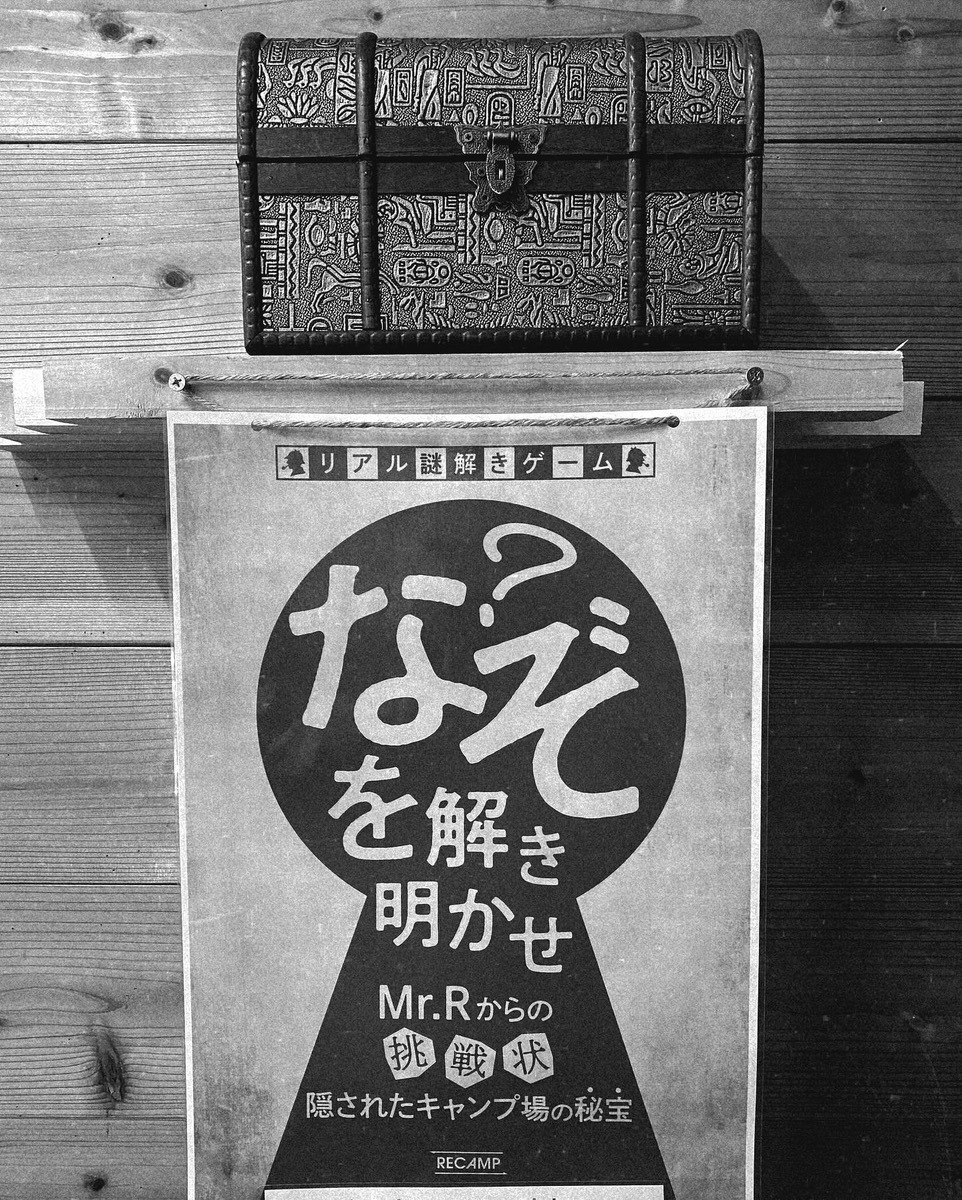 リアル謎解きゲーム
?
なぞ
を解き
明かせ
Mr.Rからの
挑戦状
隠されたキャンプ場の秘宝
RECAMP